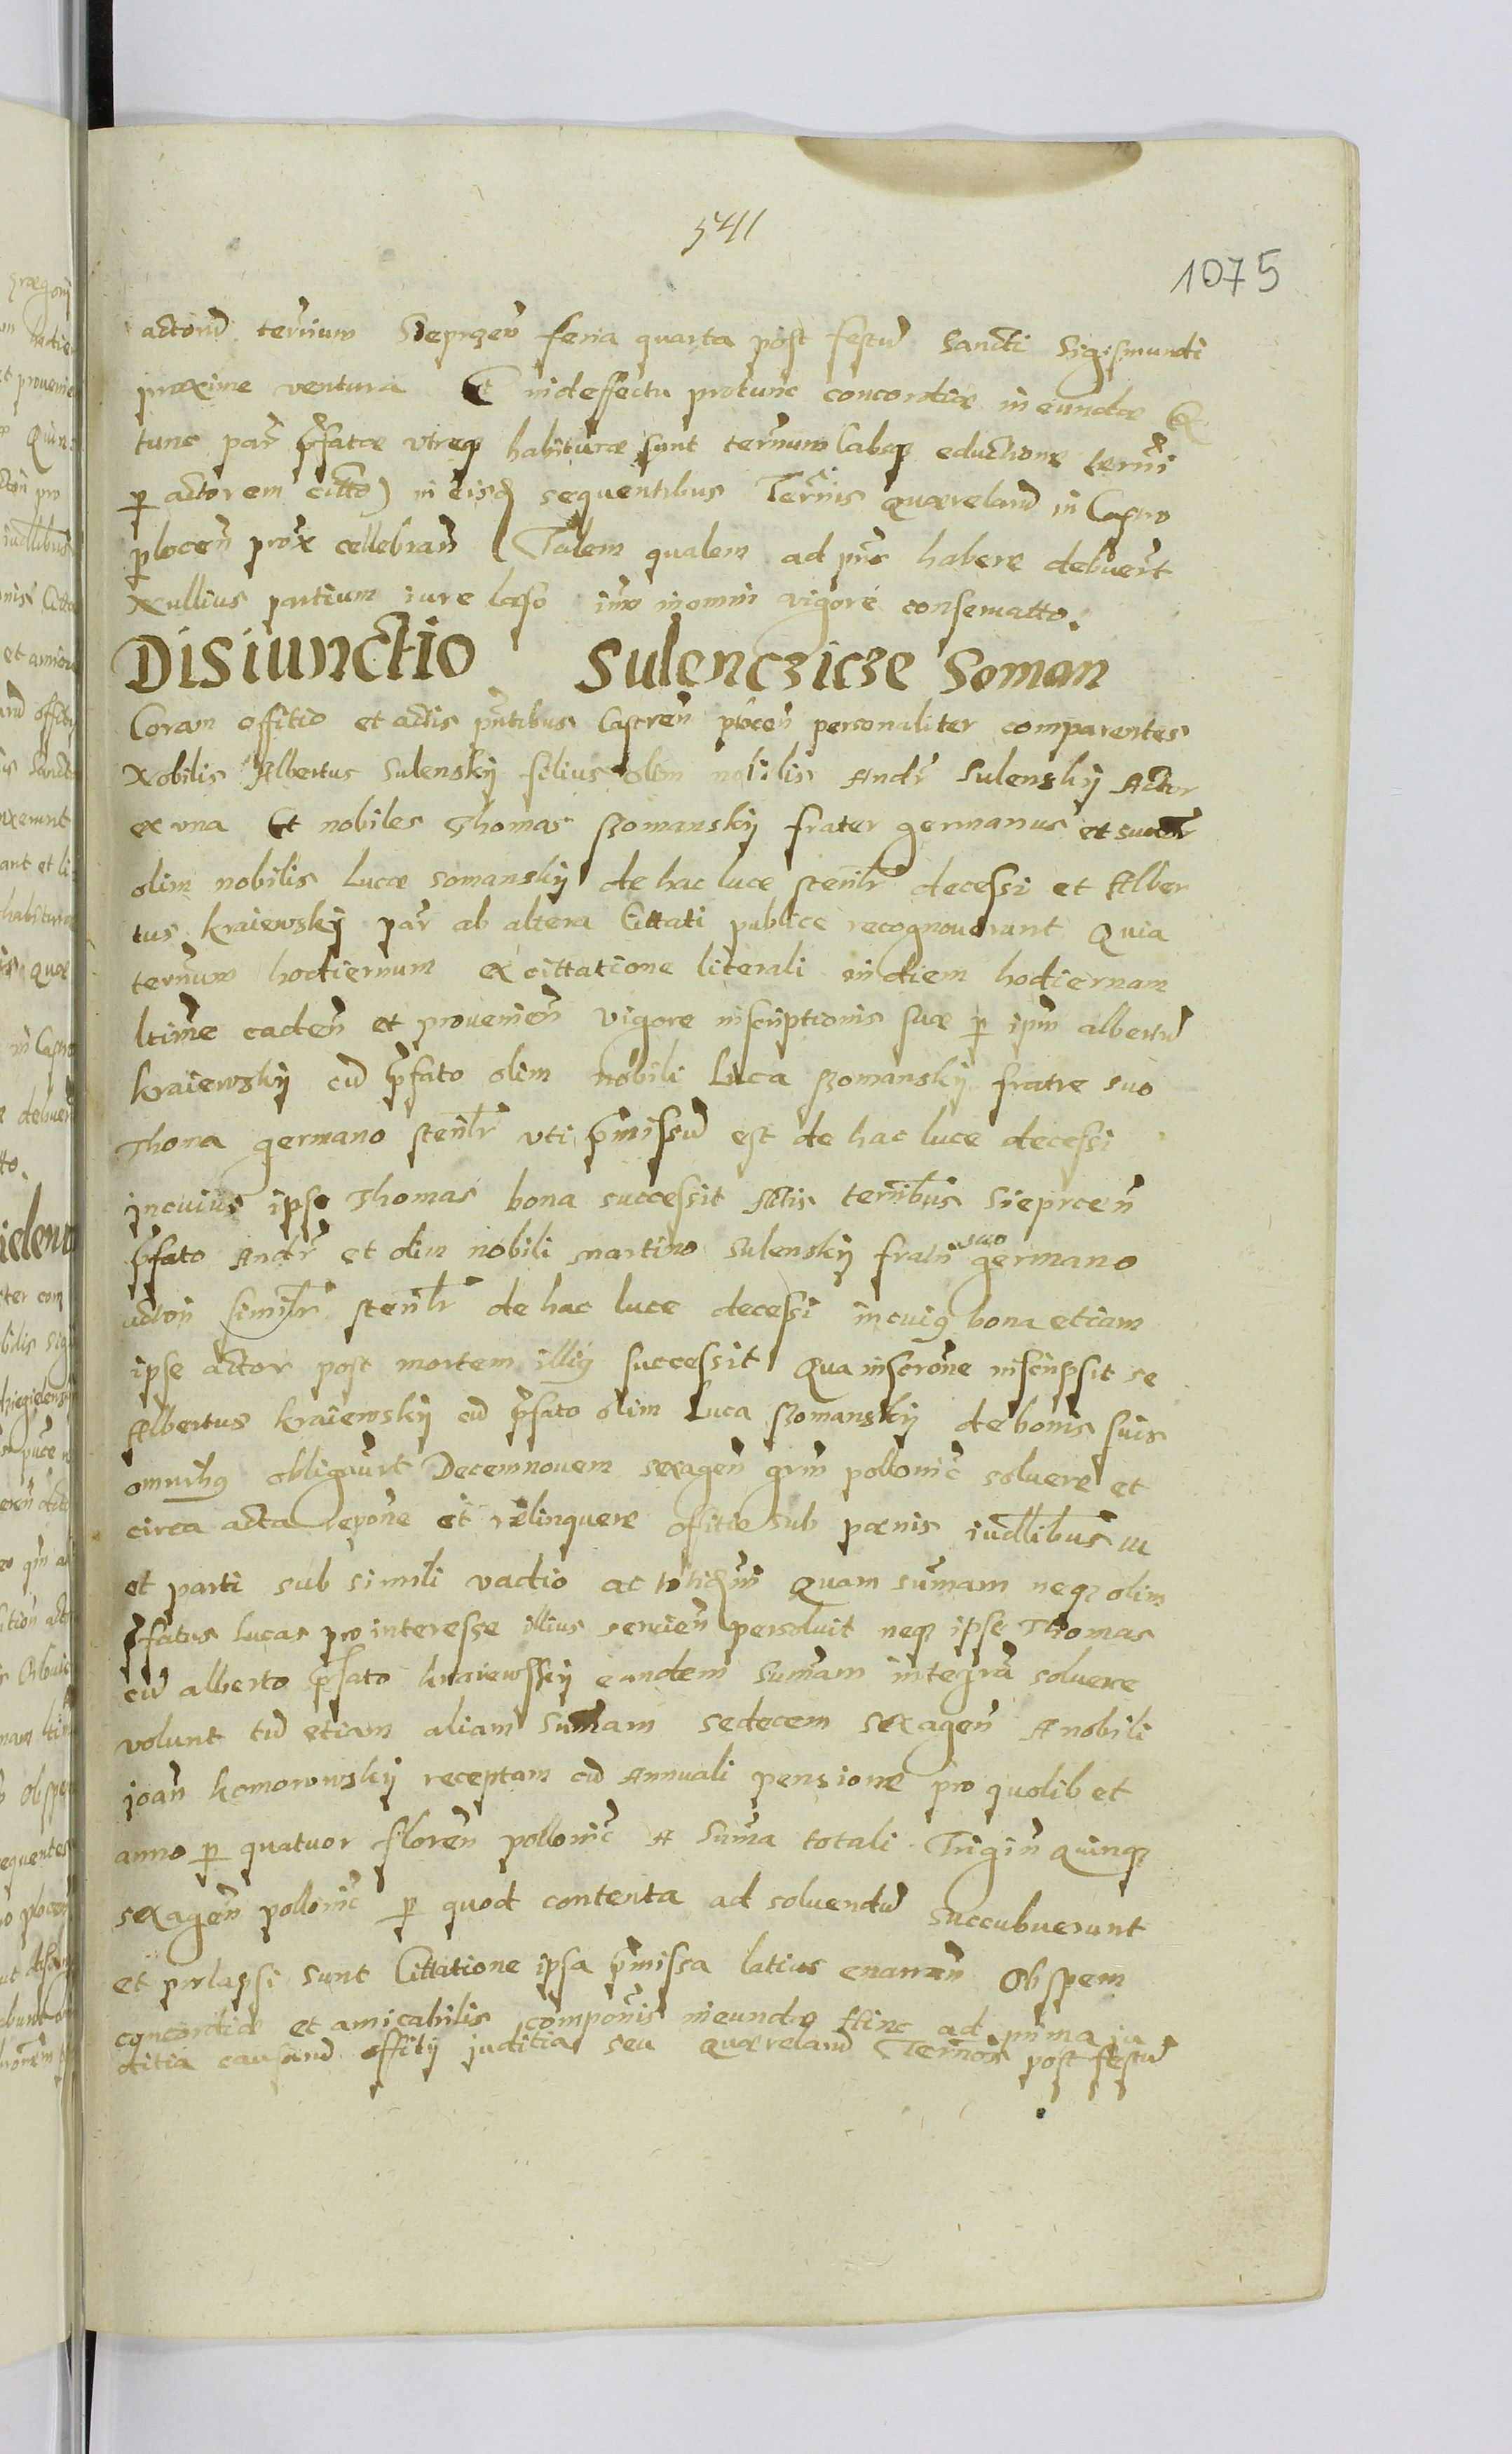 541
1075
actorũ termium Sieprzeñ feria quarta post festũ Sancti Sigismundi
proxime ventura Et in deffectu protunc concordiæ in eundæ Ex
tunc par p̃fatæ vtreqȝ habituræ sunt termnum (absqȝ eductione termi
p actorem citto) in eisd sequentibus Termis Quærelarũ in Castro
plocen̄ prox cellebran̄ (Talem qualem ad pñs habere debuert
Nullius partium iure læso imo in omni vigore conseruatto.
Disiunctio Sulenczicze Soman
Coram offitio et actis pñtibus Castren̄ plocen̄ personaliter comparentes
Nobilis Albertus Sulenskij filius olim nobilis Andr̃ Sulenskij Actor
ex vna Et nobiles Thomas Somanskij frater germanus et
olim nobilis Lucæ Somanskij de hac luce sterilr̃ decessi et Alber
tus kraiewskij par̃ ab altera Cittati publice recognouerunt Quia
termnum hodiernum ex cittatione literali in diem hodiernam
ltime caden̄ et prouenien̄ vigore inscriptionis suæ p ipm̃ albertũ
kraiewskij cũ p̃fato olim nobili Luca Somanskij fratre suo
Thoma germano sterilr̃ vti p̃missũ est de hac luce decessi
in cuius ipse Thomas bona successit Actis terribus Sieprcen̄
p̃fato Andr̃ et olim nobili Martino Sulenskij fratri suo germano
actori similr̃ sterilr̃ de hac luce decessi in cuiȝ bona etiam
ipse actor post mortem illiȝ successit Qua inscrone inscripsit se
Albertus kraiewskij cũ p̃fato olim Luca Somanskij de bonis suis
omnibȝ obligauert Decemnouem sexagen̄ grm̃ pollonic̃ soluere et
circa acta repone et relinquere offitio sub pænis iudlibus
et parti sub simili vadio ac Quam sum̃am neqȝ olim
p̃fatus Lucas pro interesse illius seruien̄ persoluit neqȝ ipse Thomas
cũ alberto p̃fato kraiewskij eandem sumam integrã soluere
volunt tũ etiam aliam sum̃am sedecem sexagen̄ A nobili
joan̄ komorowskij receptam cũ Annuali pensione pro quolibet
anno p quatuor floren̄ pollonic̃ A suma totali Trigin̄ quinqȝ
sexagen̄ pollonic̃ p quod contenta ad soluendũ succubuerunt
et prlapsi sunt Cittatione ipsa p̃missa latius enarran̄ Ob spem
concordiæ et amicabilis componis ineundæ Hinc ad prima ju
ditia causarũ offitij juditia seu quærelarũ Termos post festũ